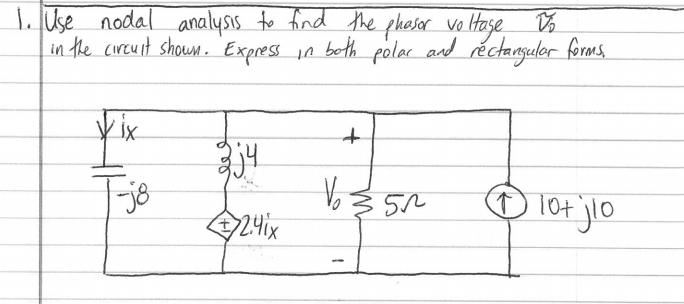 1. Use nodal analysis to find the phasor voltage V̄o
in the circuit shown. Express in both polar and rectangular forms.
ix
+
j4
-j8
Vo
5Ω
↑
10+j10
±
2.4ix
-